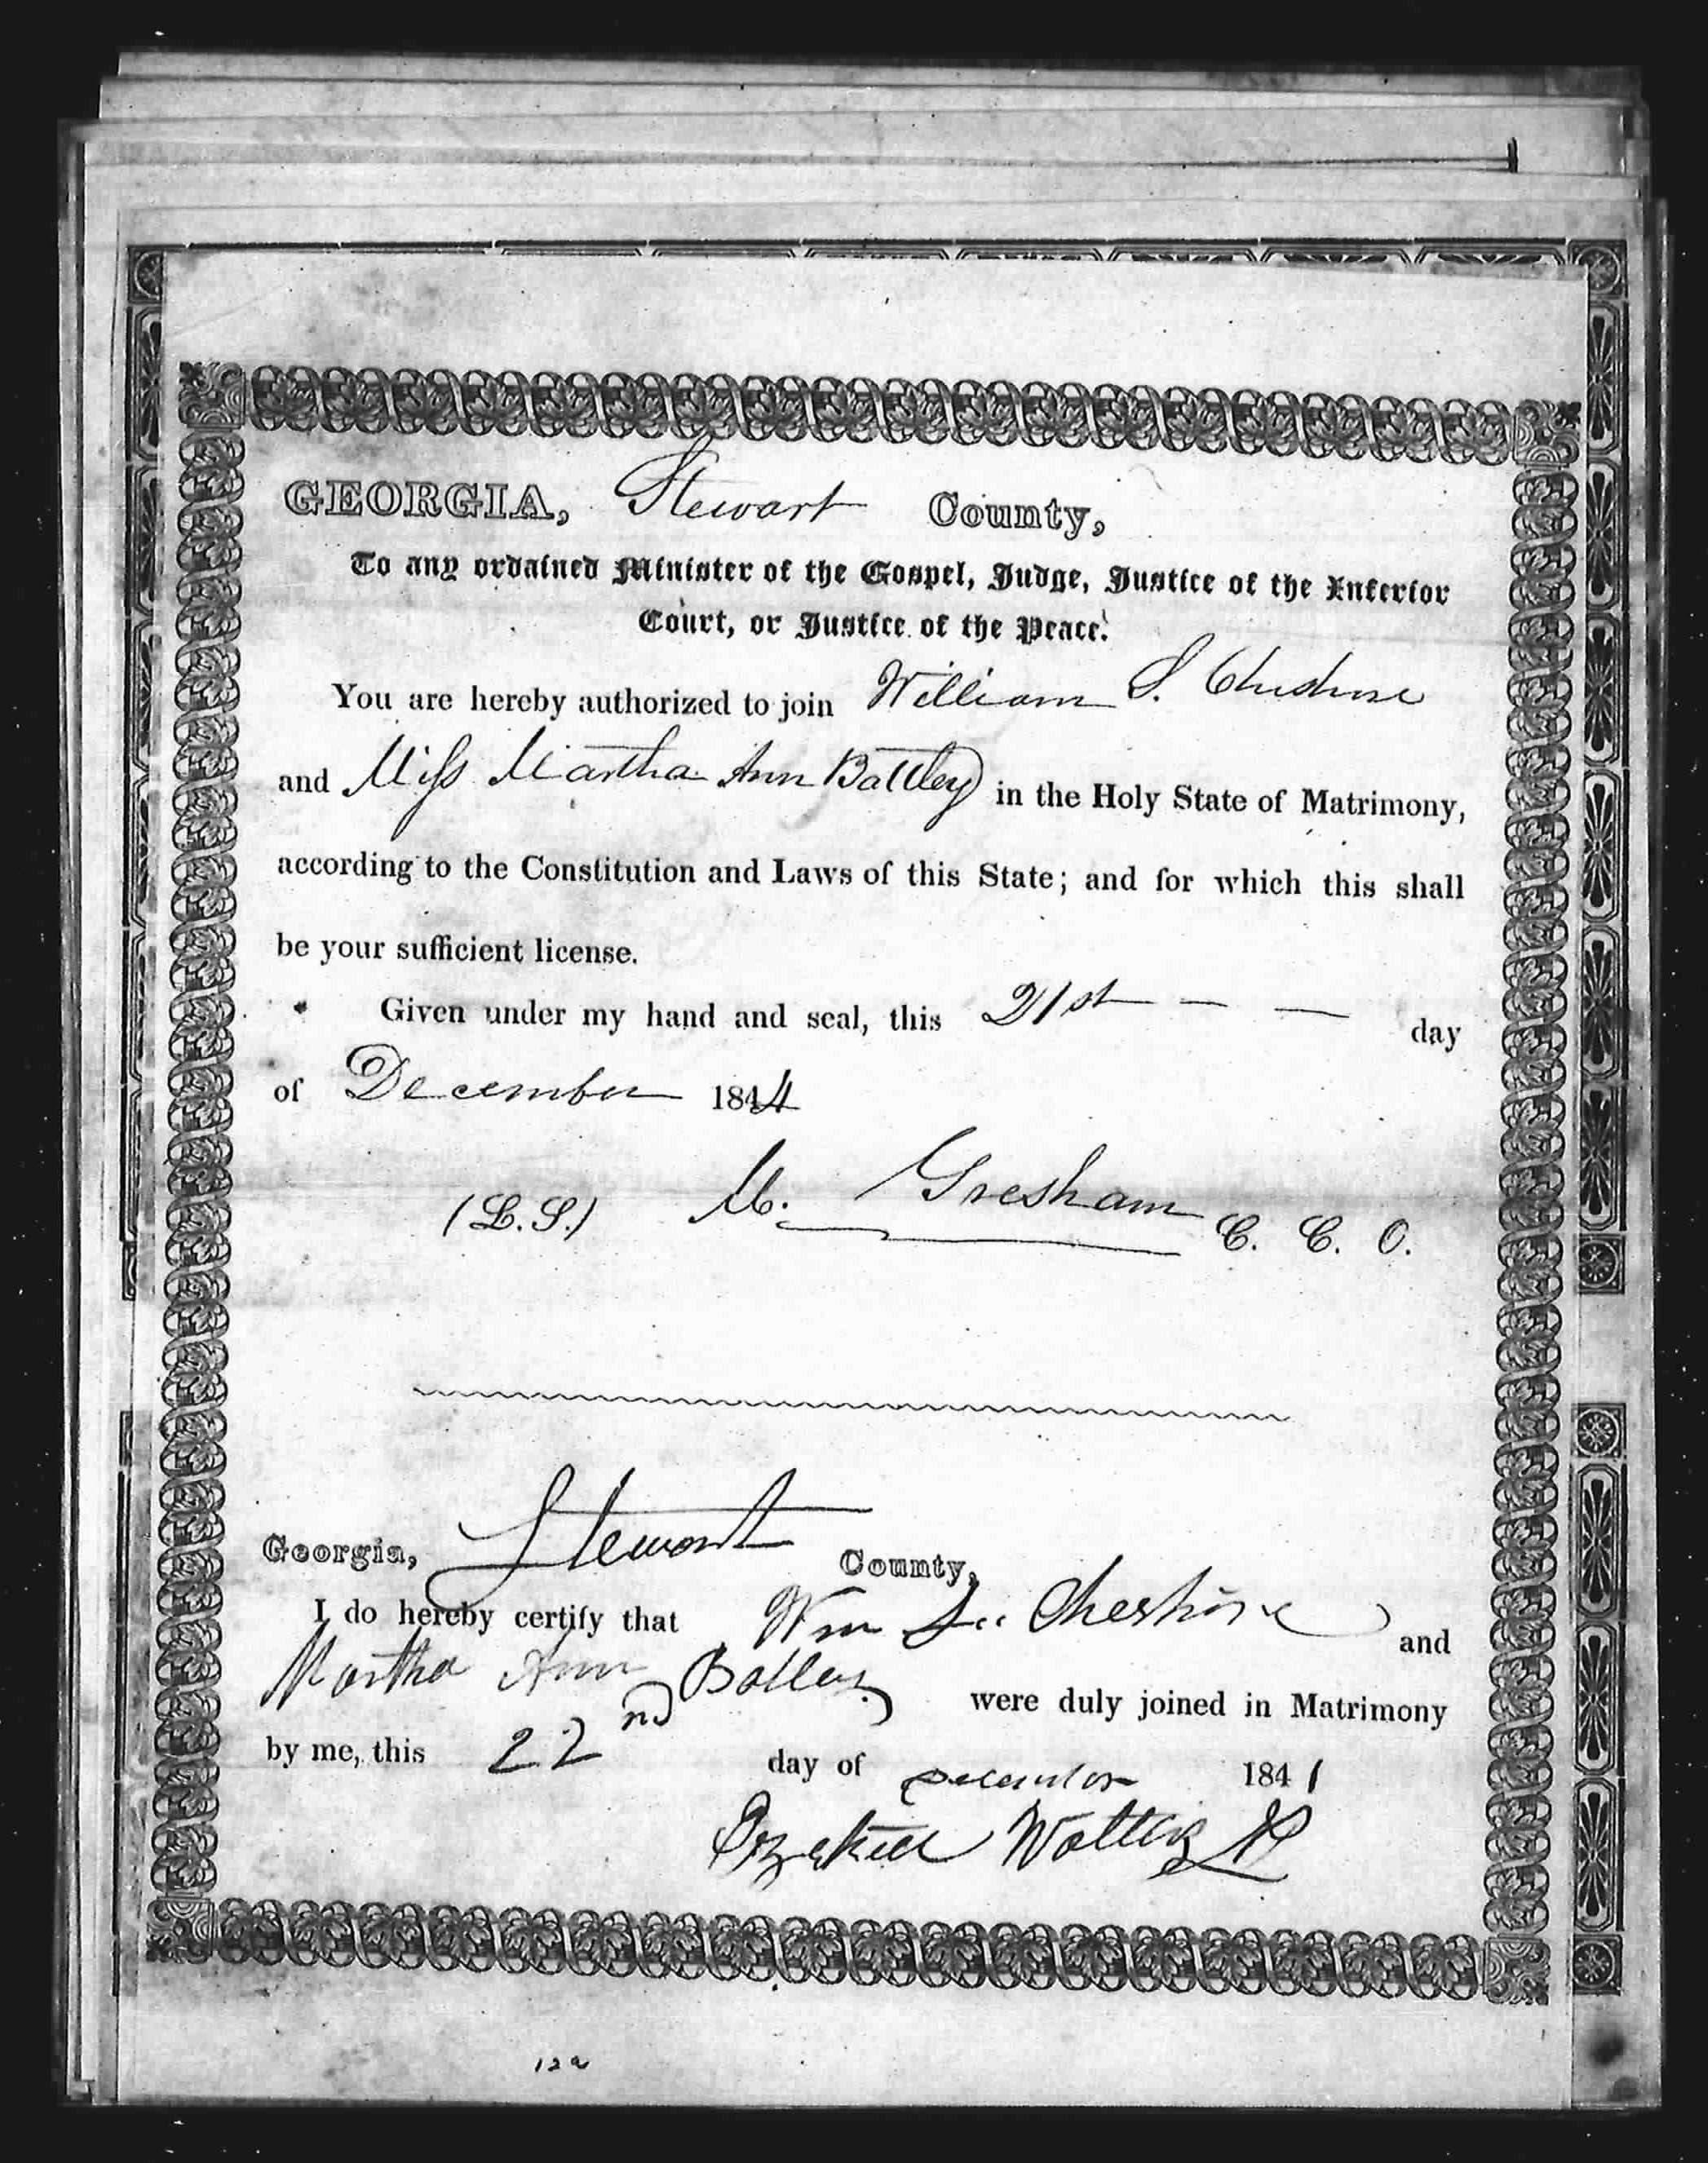 GEORGIA, Stewart County,
To any ordained Minister of the Gospel, Judge, Justice of the Inferior
Court, or Justice of the Peace.
You are hereby authorized to join William S. Cheshire
and Miss Martha Ann Battley in the Holy State of Matrimony,
according to the Constitution and Laws of this State; and for which this shall
be your sufficient license.
Given under my hand and seal, this 21st — — day
of December 1844
(L.S.) M. Gresham C. C. O.
Georgia, Stewart County,
I do hereby certify that Wm S. Cheshire and
Martha Ann were duly joined in Matrimony
by me, this 22nd day of December 1841
Ezekiel